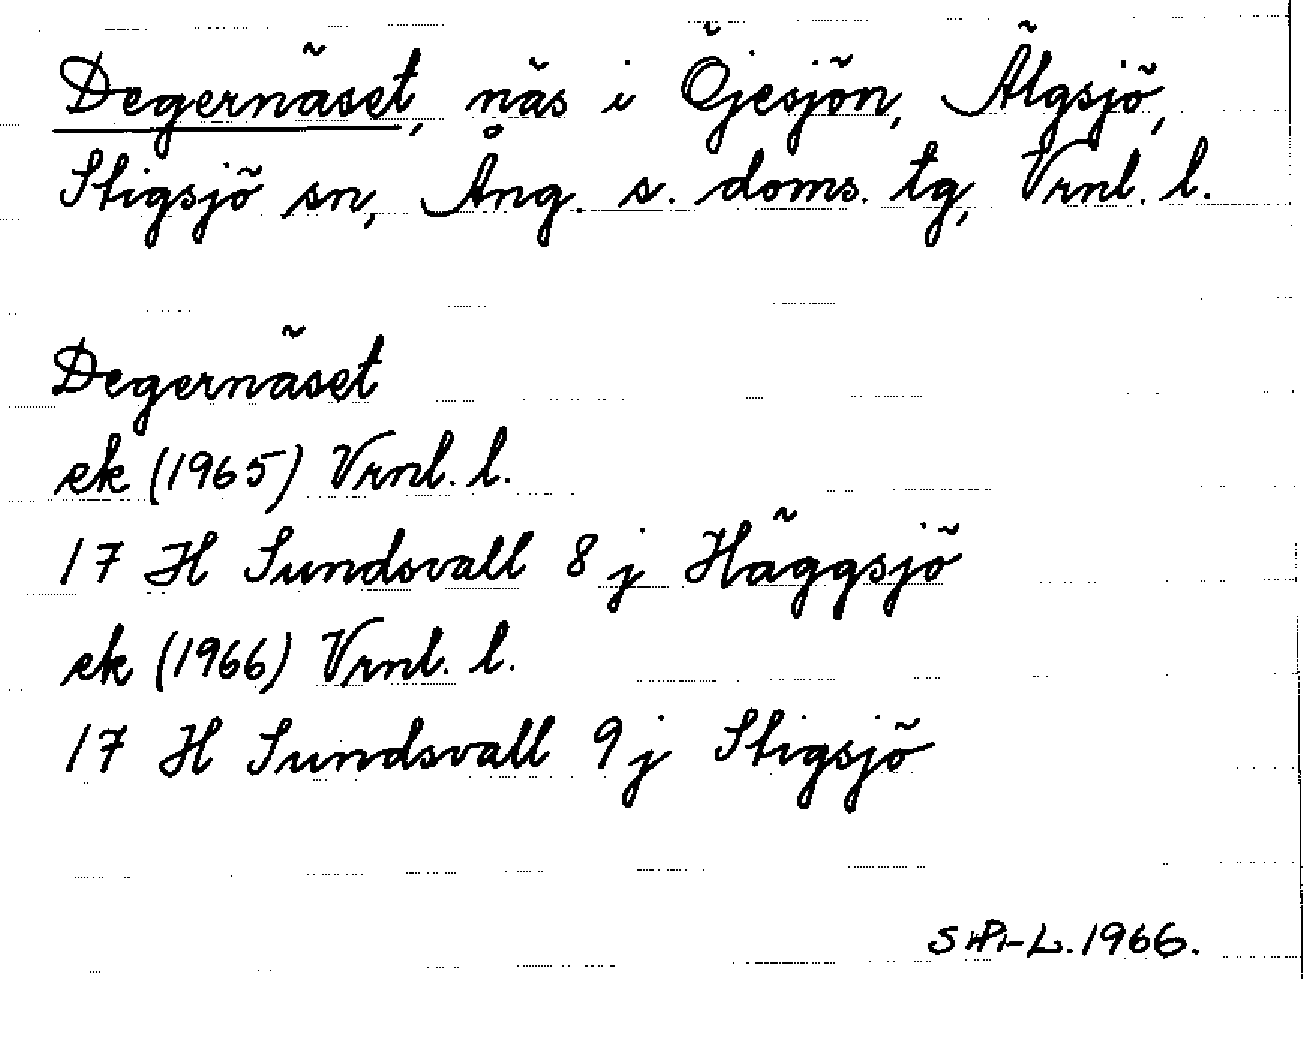 Degernäset, näs i Öjesjön, Älgsjö,
Stigsjö sn, Ång. s. doms. tg, Vrnl. l.
Degernäset
ek (1965) Vrnl. l.
17 H Sundsvall 8 j Häggsjö
ek (1966) Vrnl. l.
17 H Sundsvall 9 j Stigsjö
1966.